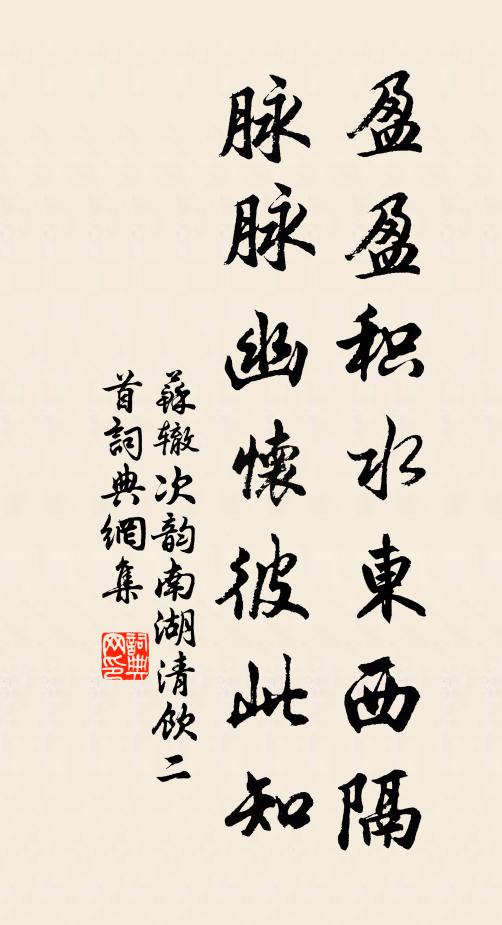 盈盈积水東西隔
脉脉幽懷彼此知
蘇辙次韵南湖清飲二
首詞典網集
詞典网印